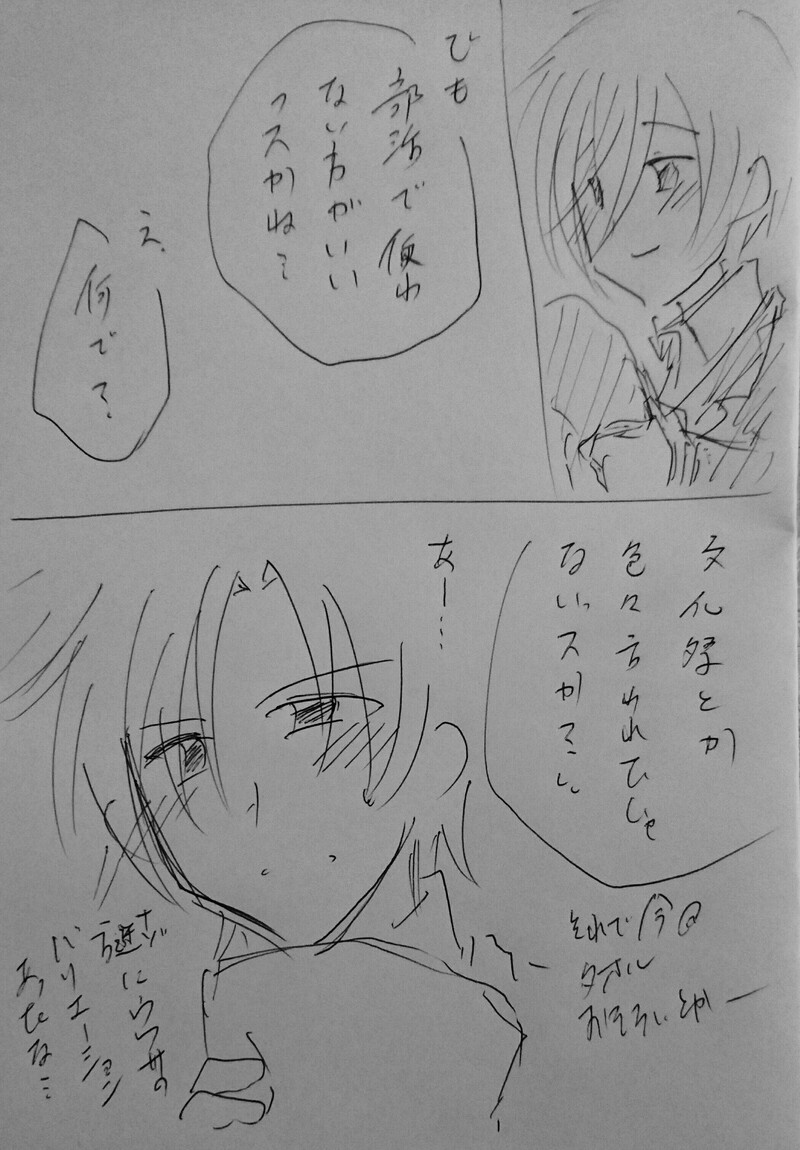 ひも
部活で使わ
ない方がいい
っスかね…
え、
何でて
文化祭とか
色々言われてじゃ
ないっスか
あー…
それで今
タオル
おそろいとかー
謎にウワサの
ナゾ
バリエーション
あったな…